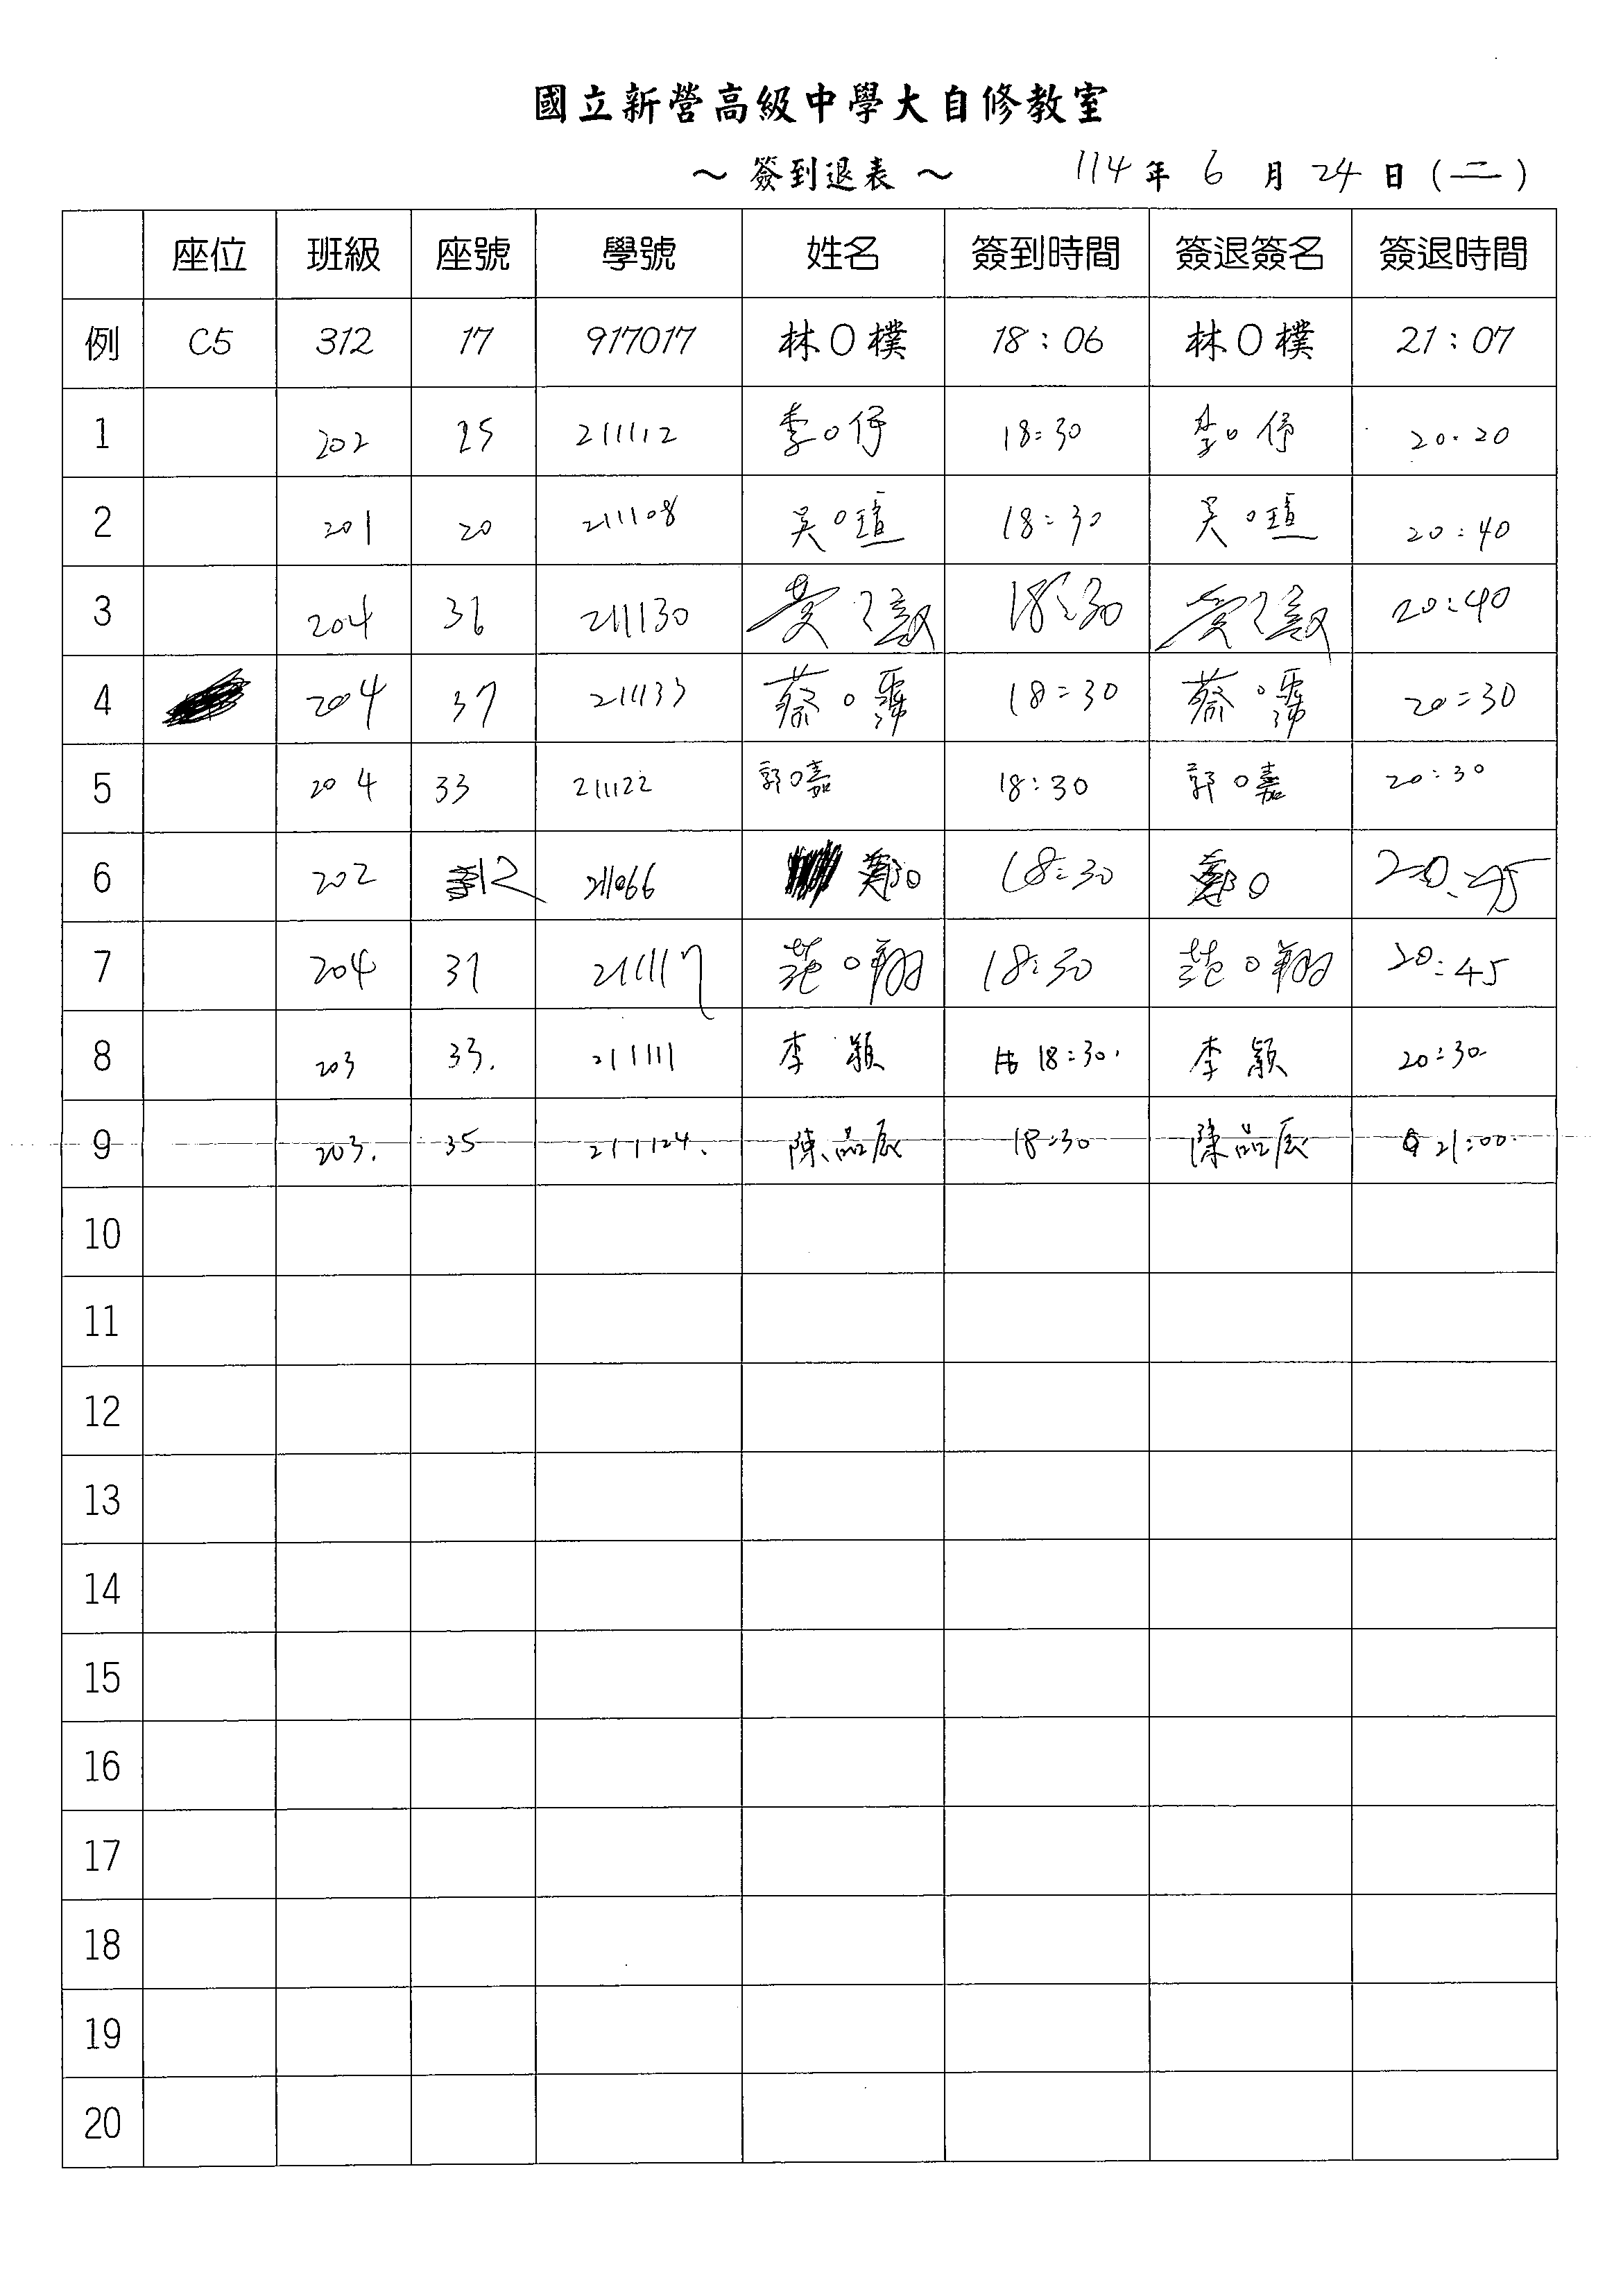 國立新營高級中學大自修教室
～ 簽到退表 ～ 114年 6 月 24 日 (二)
座位 班級 座號 學號 姓名 簽到時間 簽退簽名 簽退時間
例 C5 312 17 917017 林O樸 18:06 林O樸 21:07
1 202 25 211112 李O伃 18:30 李O伃 20:20
2 201 20 211108 吳O瑄 18:30 吳O瑄 20:40
3 204 36 211130 黃 18:30 黃 20:40
4 204 37 211133 蔡O霈 18:30 蔡O霈 20:30
5 204 33 211122 郭O嘉 18:30 郭O嘉 20:30
6 202 12 211066 鄭O 18:30 鄭O 20:45
7 204 31 211117 范O翔 18:30 范O翔 20:45
8 203 33. 211111 李 穎 18:30. 李 穎 20:30
9 203. 35 211124. 陳品辰 18:30 陳品辰 21:00
10
11
12
13
14
15
16
17
18
19
20